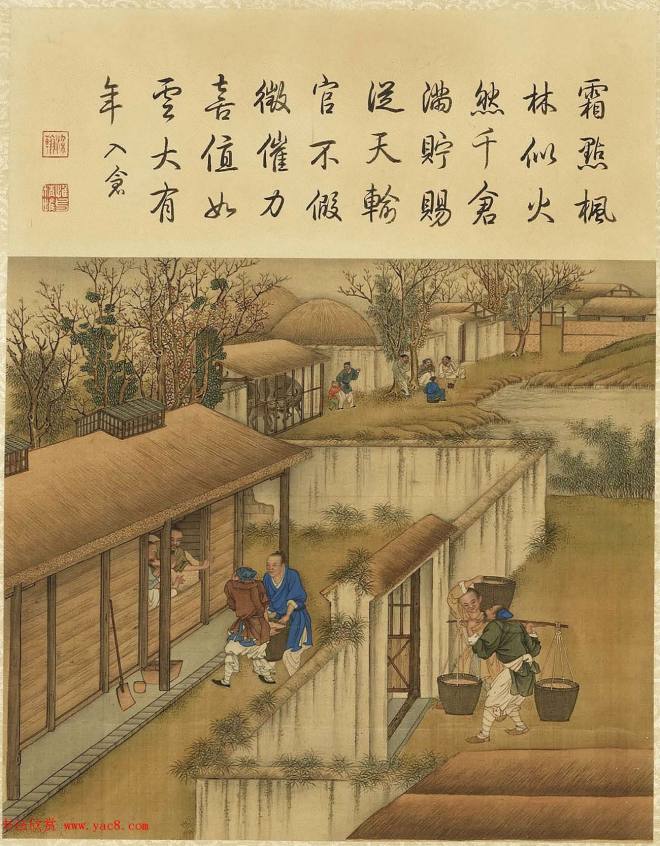 霜點楓
林似火
然千倉
滿貯賜
從天輸
官不假
徵催力
喜值如
雲大有
年 入倉
书法欣赏 www.yac8.com